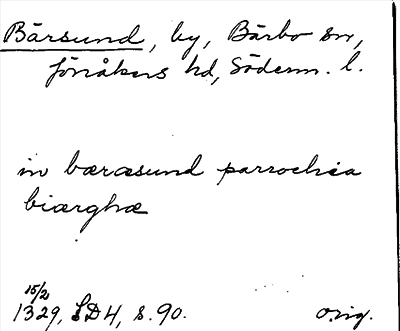 Bärsund, by, Bärbo sn,
Jönåkers hd, Söderm. l.
in bæræsund parrochia
biærghæ
15/2
1329, SD 4, s. 90. orig.